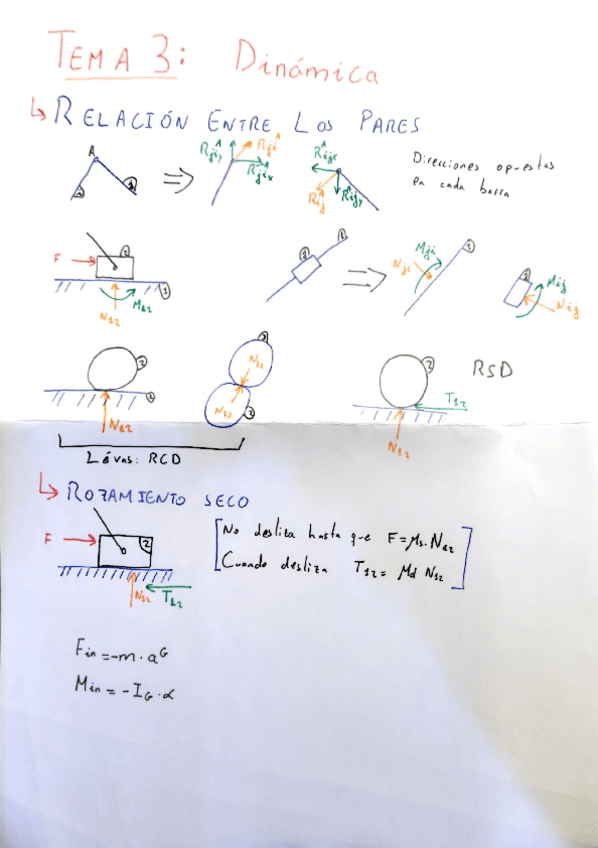 TEMA 3: Dinámica
↳ RELACIÓN ENTRE LOS PARES
A
R^A_jiy R^A_ji R^A_jix
R^A_ijx R^A_ij R^A_ijy
Direcciones opuestas
en cada barra
F 2 1 N12 M12
2 1
N_ji M_ji 1
M_ij N_ij
2 N12
2 N32 N23 3
2 T12 N12
RSD
Lévas: RCD
↳ ROZAMIENTO SECO
F 2 N12 T12
No desliza hasta que F=μs·N12
Cuando desliza T12= μd N12
Fin=-m·a^G
Min=-I_G·α